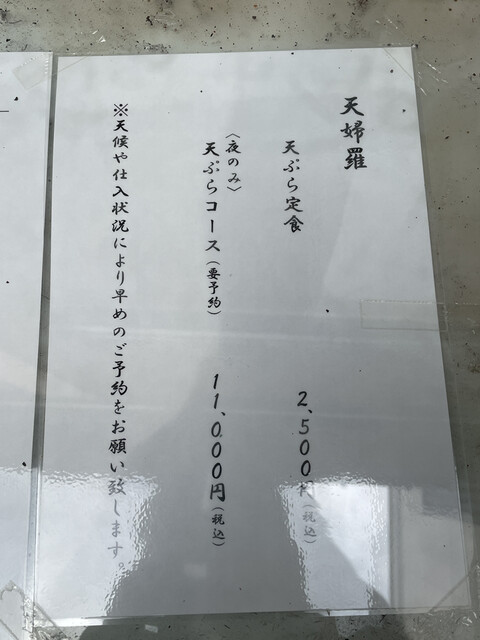 天婦羅
天ぷら定食 2、500円（税込）
〈夜のみ〉
天ぷらコース（要予約） 11、000円（税込）
※天候や仕入状況により早めのご予約をお願い致します。